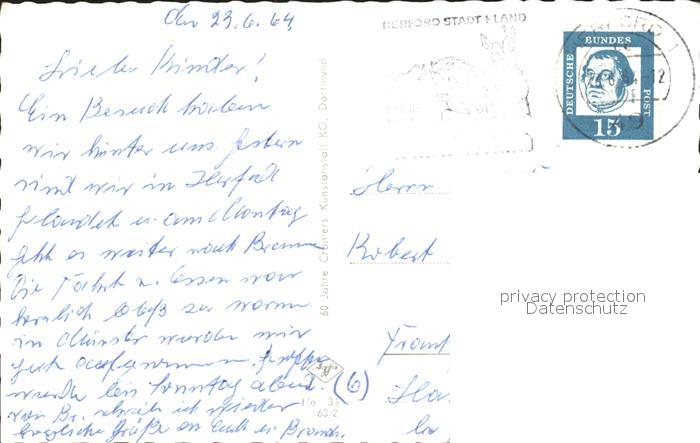 den 23.6.64.
HERFORD STADT + LAND
HERFORD 1
DEUTSCHE BUNDES POST
15
Liebe Kinder!
Ein Besuch haben
wir hinter uns gestern
sind wir in Herford
gelandet u. am Montag
geht es weiter nach Bremen
Die Fahrt u. Essen war
herrlich bloß zu warm
in Münster wurden wir
gut aufgenommen
wurde bis Sonntag abend.
von Br. schreib ich wieder
herzliche Grüße an Euch u.
(6)
60 Jahre Cramers Kunstanstalt KG, Dortmund
He 35
63/2
Herrn
Robert
Frank
privacy protection
Datenschutz